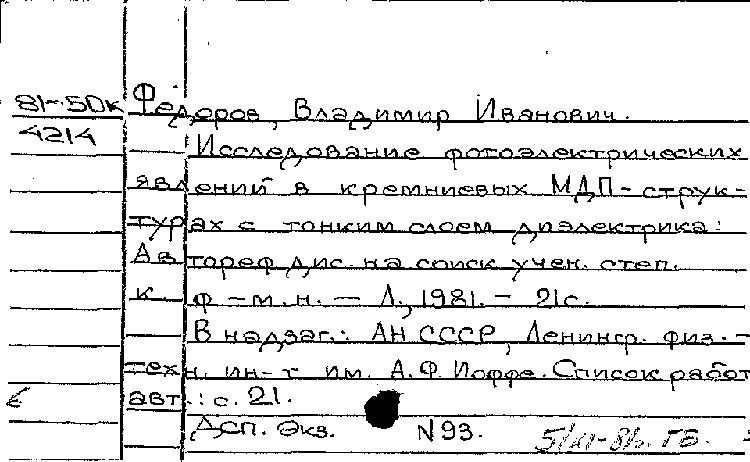 81-50к Федоров, Владимир Иванович.
4214 Исследование фотоэлектрических
явлений в кремниевых МДП-струк-
турах с тонким слоем диэлектрика:
Автореф. дис. на соиск учен. степ.
к ф-м.н. - Л., 1981. - 21с.
В надзаг.: АН СССР, Ленингр. физ.-
техн. ин-т им. А.Ф. Иоффе. Список работ
авт.: с. 21.
Дсп. Экз. N93.